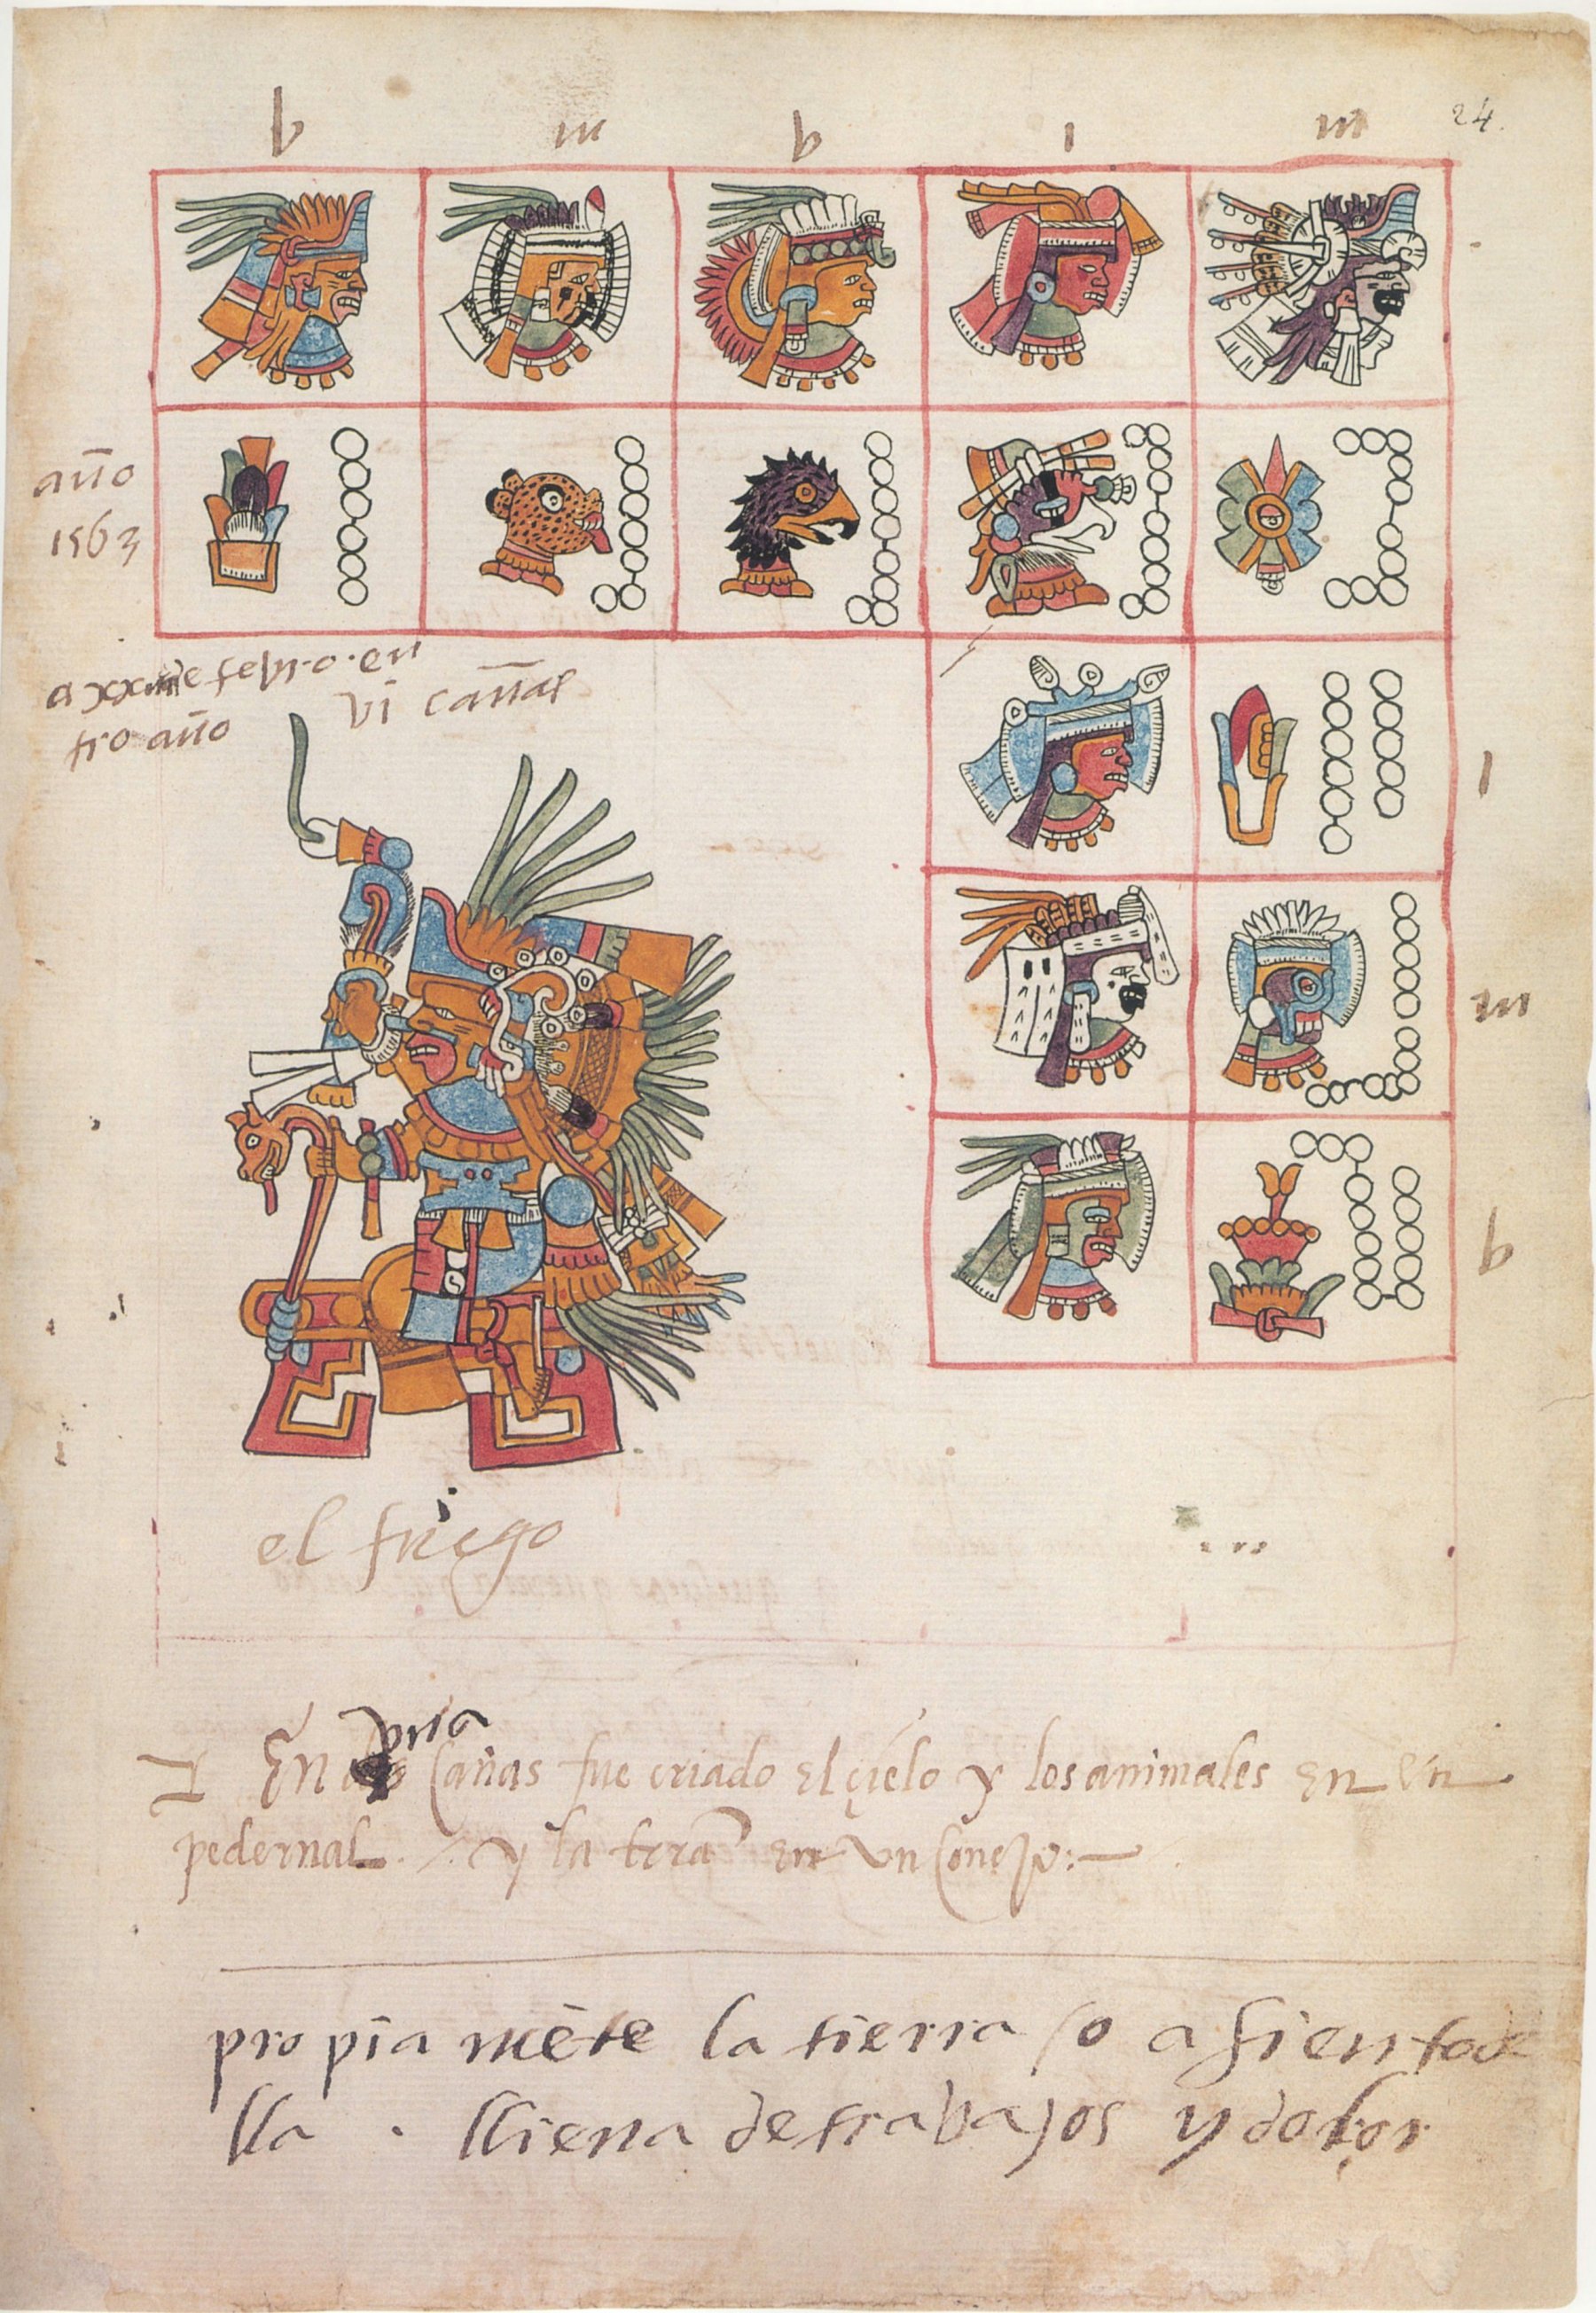 24.
b m b i m
año
1563
a xxiiii de febr.o. en
vi cañas
tro año
l
m
b
el fuego
En una Cañas fue criado El çielo y los animales En Un
pedernal. y la tera En Un Conejo:—
propia mēte la tierra so asienta de
lla . lliena de trabajos y dolor